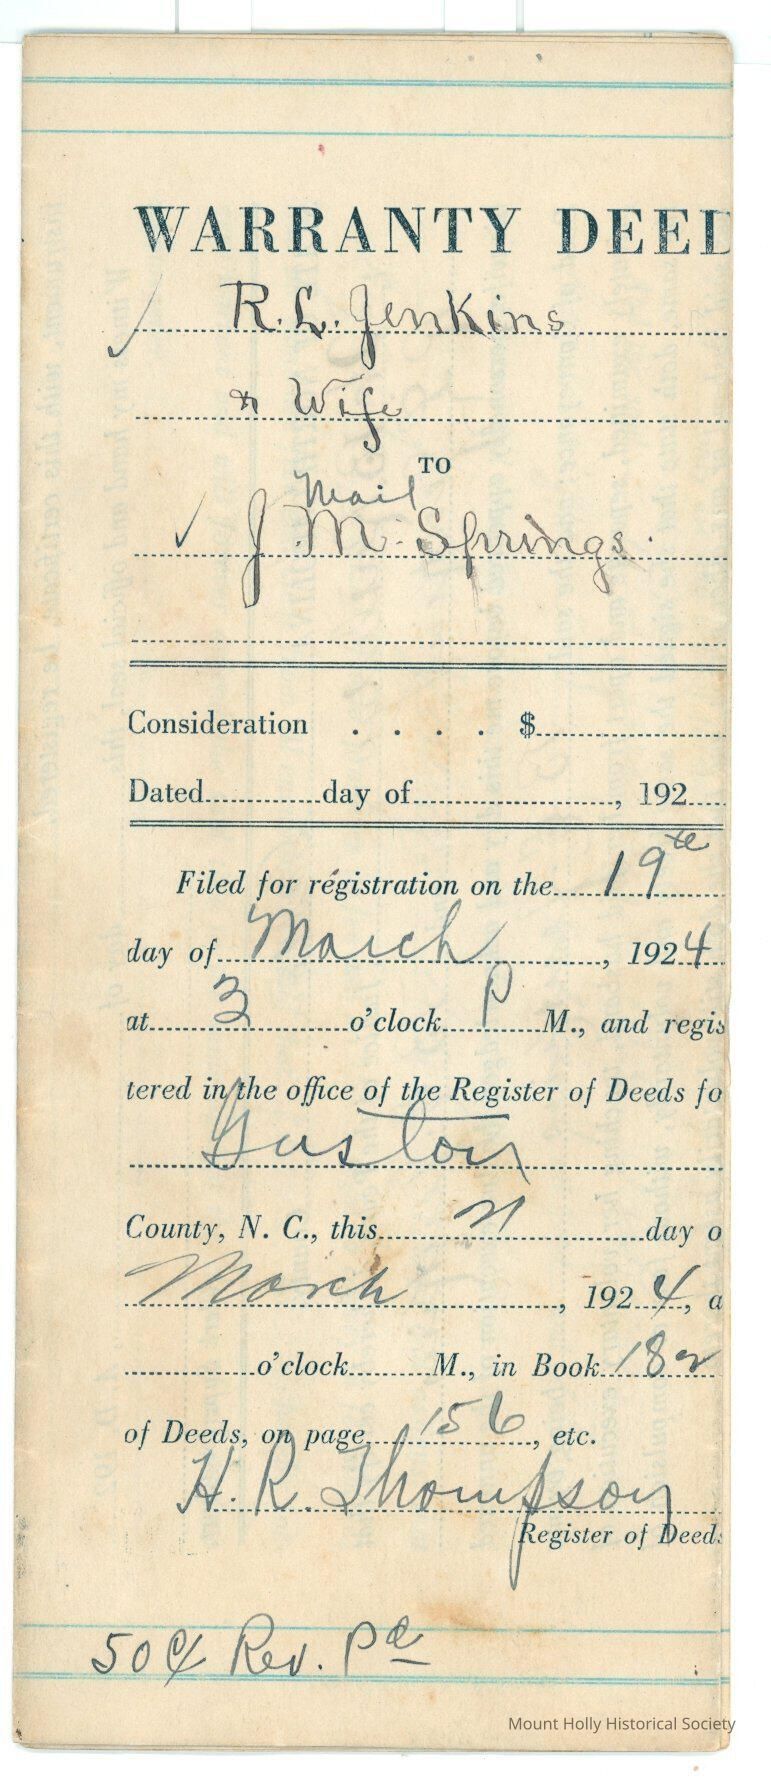 WARRANTY DEED
R. L. Jenkins
& Wife
TO
Mail
J. M. Springs.
Consideration . . . . $
Dated............day of........................, 192....
Filed for registration on the....19th
day of....March............, 1924
at....3........o'clock....P....M., and regis
tered in the office of the Register of Deeds fo
Gaston
County, N. C., this....21....day o
March............, 1924, a
............o'clock........M., in Book 182
of Deeds, on page....156...., etc.
H. R. Thompson
Register of Deeds
50¢ Rev. Pd
Mount Holly Historical Society